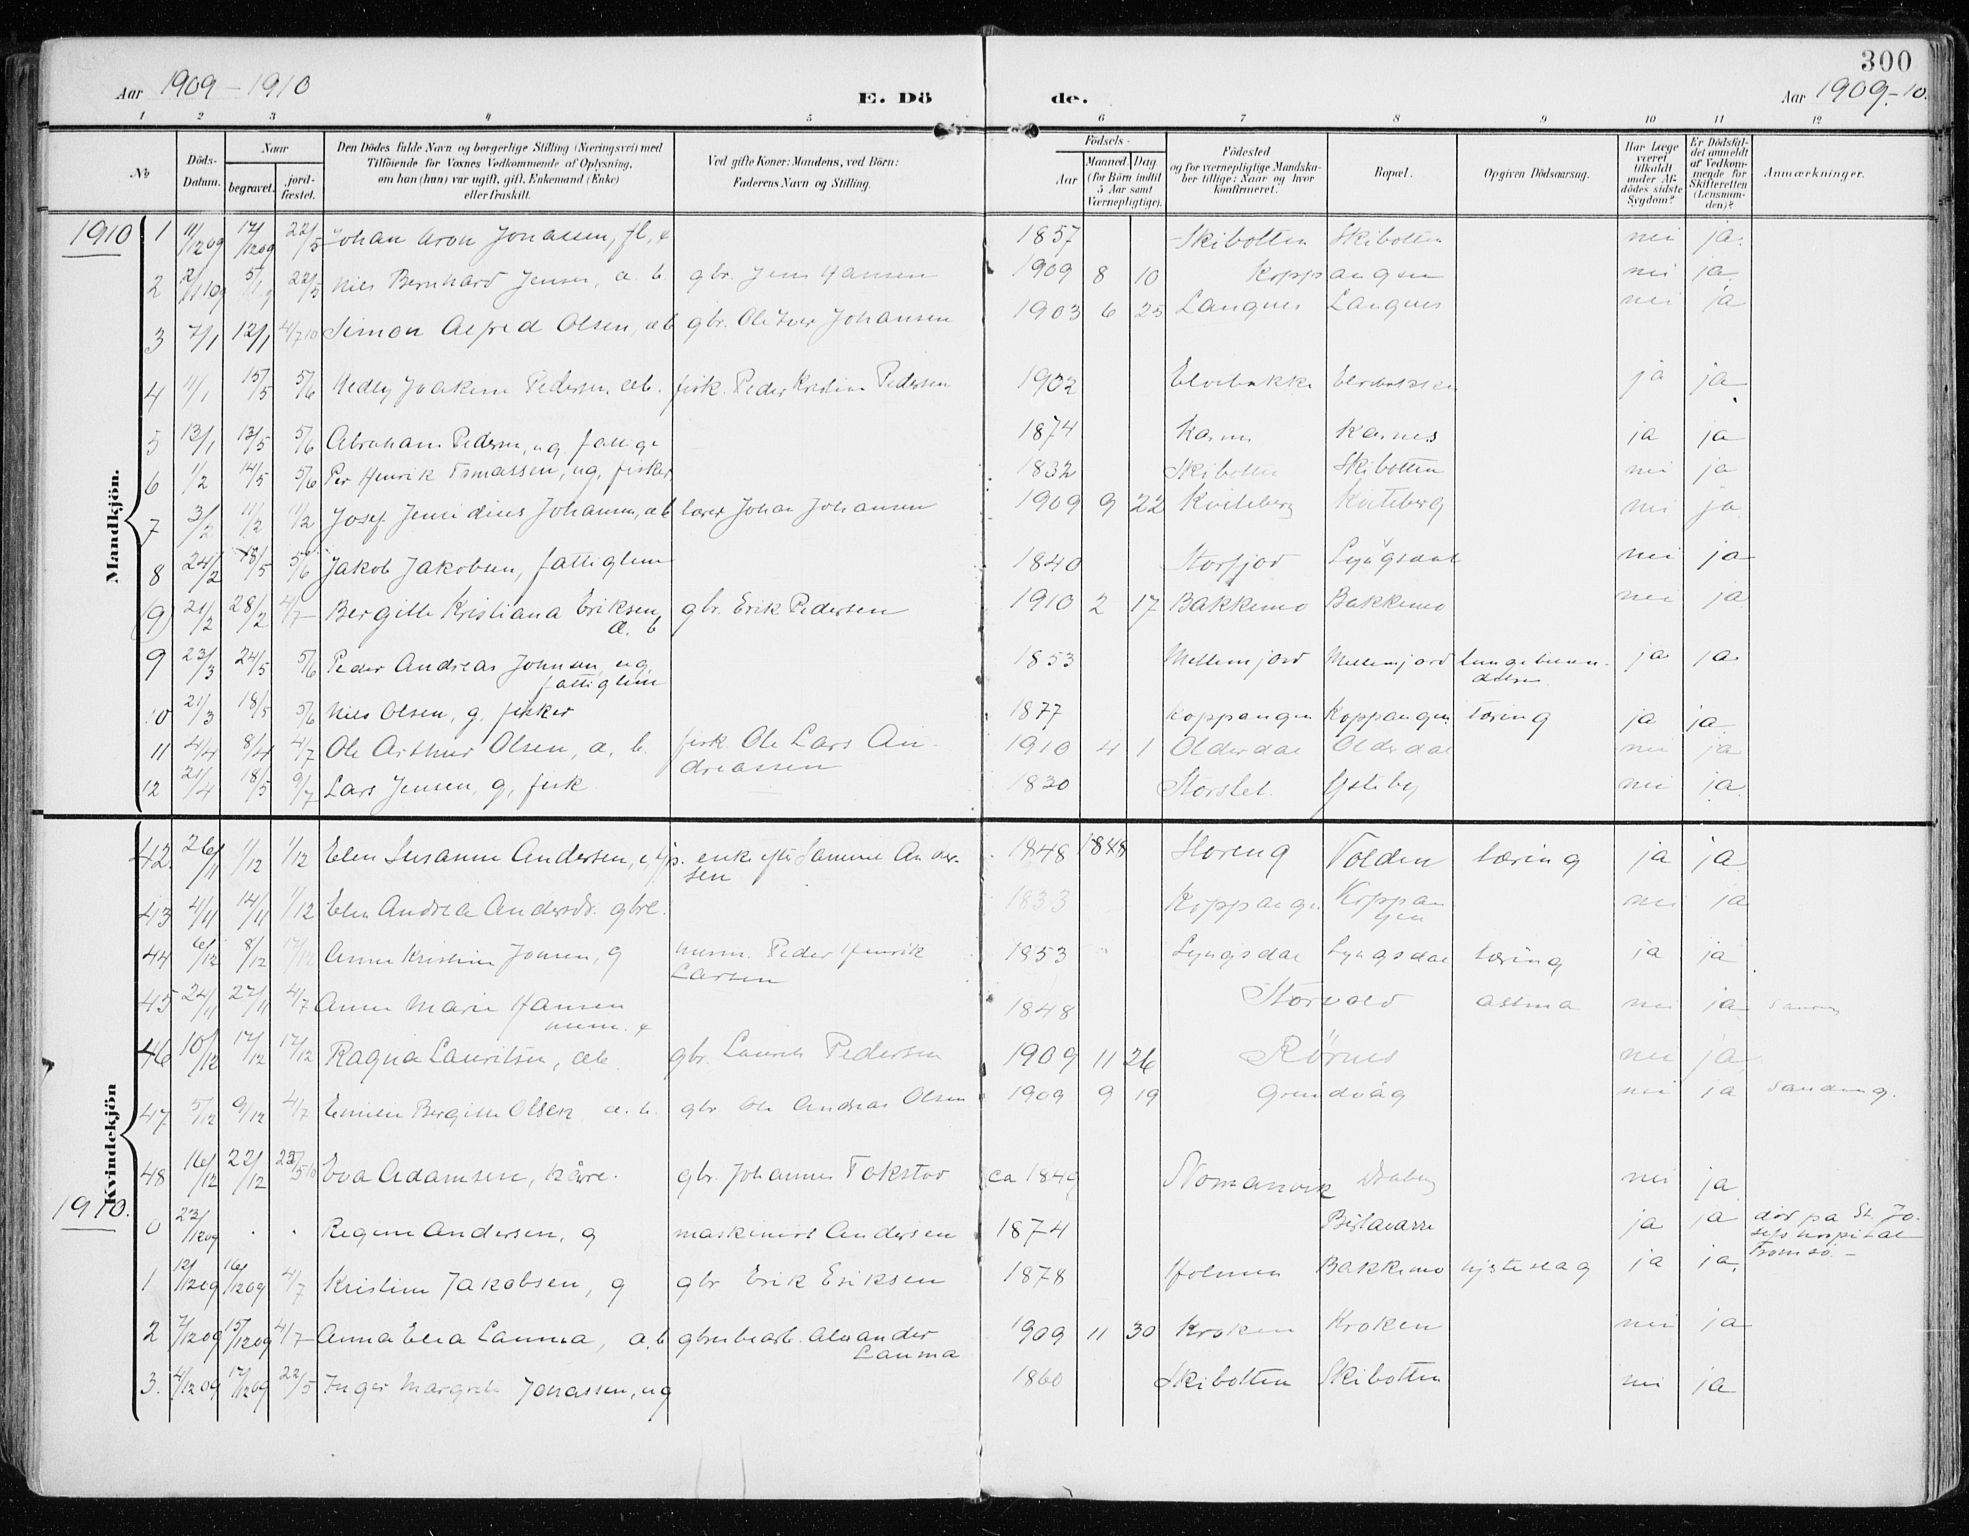 300
Aar 1909-1910 E. Dö de. Aar 1909-10.
1 2 3 4 5 6 7 8 9 10 11 12
No Döds-Datum. Naar begravet. jord-fæstet. Den Dödes fulde Navn og borgerlige Stilling (Næringsvei) med Tilföiende for Voxnes Vedkommende af Oplysning, om han (hun) var ugift, gift, Enkemand (Enke) eller fraskilt. Ved gifte Koner: Mandens, ved Börn: Faderens Navn og Stilling. Födsels- Aar Maaned Dag (for Börn indtil 5 Aar samt Værnepligtige). Födested og for værnepligtige Mandska-ber tillige: Naar og hvor konfirmeret. Bopæl. Opgiven Dödsaarsag. Har Læge været tilkaldt under Af-dödes sidste Sygdom? Er Dödsfal-det anmeldt af Vedkom-mende for Skifteretten (Lensman-den)? Anmærkninger.
Mandkjön.
1910 1 11/1209 17/1209 22/5 Johan Aron Jonassen, fl, e 1857 Skibotten Skibotten nei ja.
2 22/5 Nils Bernhard Jensen, a. b. gbr. Jens Hansen 1909 8 10 Koppangen nei ja.
3 7/1 12/1 4/710 Simon Alfred Olsen, æb gbr. Ole Johansen 1903 6 25 Langnes Langnes nei ja
4 11/1 15/5 5/6 Hedley Joakim Pedersen, æb. fisk. Peder Kristian Pedersen 1902 Elvebakke Elvebakken ja ja
5 13/1 13/5 5/6 Abraham Pedersen, ug. fattig 1874 Karnes Karnes ja ja
6 1/2 14/5 5/6 Per Henrik Tomassen, ug, fisker 1832 Skibotten Skibotten nei ja
7 3/2 11/2 11/2 Josef Johansen, æb lærer Johan Johansen 1909 9 22 Kviteberg Kviteberg nei ja
8 24/2 18/5 5/6 Jakob Jakobsen, fattiglem 1840 Storfjord Lyngsdal nei ja
(9) 21/2 28/2 4/7- Bergitte Kristiana Eriksen, gbr. Erik Pedersen 1910 2 17 Bakkemo Bakkemo nei ja
æ. b
9 23/3 24/5 5/6 Peder Andreas Johnsen, ug, 1853 Mellemjord Mellemjord lungebetæn- ja ja
fattiglem delse
10 21/3 18/5 5/6 Nils Olsen, g, fisker 1877 Koppangen Koppangen Tæring ja ja
11 4/4 8/4 4/7 Ole Arthur Olsen, a. b. fisk. Ole Lars An- 1910 4 1 Olderdal Olderdal nei ja
dreassen
12 21/4 18/5 9/7 Lars Jensen, g, fisk 1830 Storslet. Ysteby nei ja.
Kvindekjön
42. 26/11 1/12 1/12 Elen Susanne Andersen, e enke efter Samuel Ander- 1848 1848 Storeng Volden tæring ja ja.
sen
43 4/11 14/11 1/12 Elen Andrea Andersdr. gbre. 1833 Koppangen Koppan nei ja
gen
44 6/12 8/12 17/12 Anne Kristine Jonsen, g Peder Henrik 1853 Lyngsdal Lyngsdal tæring ja ja.
Larsen
45 24/11 27/11 4/7 Anne Marie Hansen 1848 Storvold astma nei ja
46 10/12 17/12 17/12 Ragna Lauritsen, æb. gbr. Laurits Pedersen 1909 11 26 Rørnes nei ja
47 5/12 9/12 4/7 Emilie Bergitte Olsen a. b. gbr Ole Andreas Olsen 1909 9 19 Grundvåg nei ja
48 16/12 22/12 Eva Adamsen, kårk. gbr. Johannes Tokstad ca 1849 Nomanvik nei ja
1910. 0 23/1209 . . Regine Andersen, g maskinist Andersen 1874 ja ja død på St. Jo-
sefs hospital
Tromsø. -
1 12/1209 16/1209 4/7 Kristine Jakobsen, g gbr Erik Eriksen 1878 Holmen Bakkemo hjerteslag ja ja.
2 7/1209 15/1209 4/7- Anna Elea Lanma, a. b Alexander 1909 11 30 Kroken Kroken nei ja
Lanma
3. 4/1209 17/1209 22/5 Inger Margrete Jonassen, ug 1860 Skibotten Skibotten nei ja